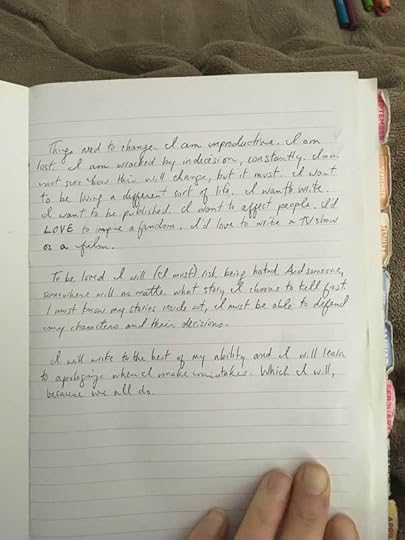 Things need to change. I am unproductive. I am
lost. I am wracked by indecision, constantly. I am
not sure how this will change, but it must. I want
to be living a different sort of life. I want to write.
I want to be published. I want to affect people. I'd
LOVE to inspire a fandom. I'd love to write a TV show
or a film.
To be loved I will (I must) risk being hated. And someone,
somewhere will no matter what story I choose to tell first.
I must know my stories inside out, I must be able to defend
my characters and their decisions.
I will write to the best of my ability and I will learn
to apologize when I make mistakes. Which I will,
because we all do.
SEPTEMBER
JANUARY
FEBRUARY
APRIL